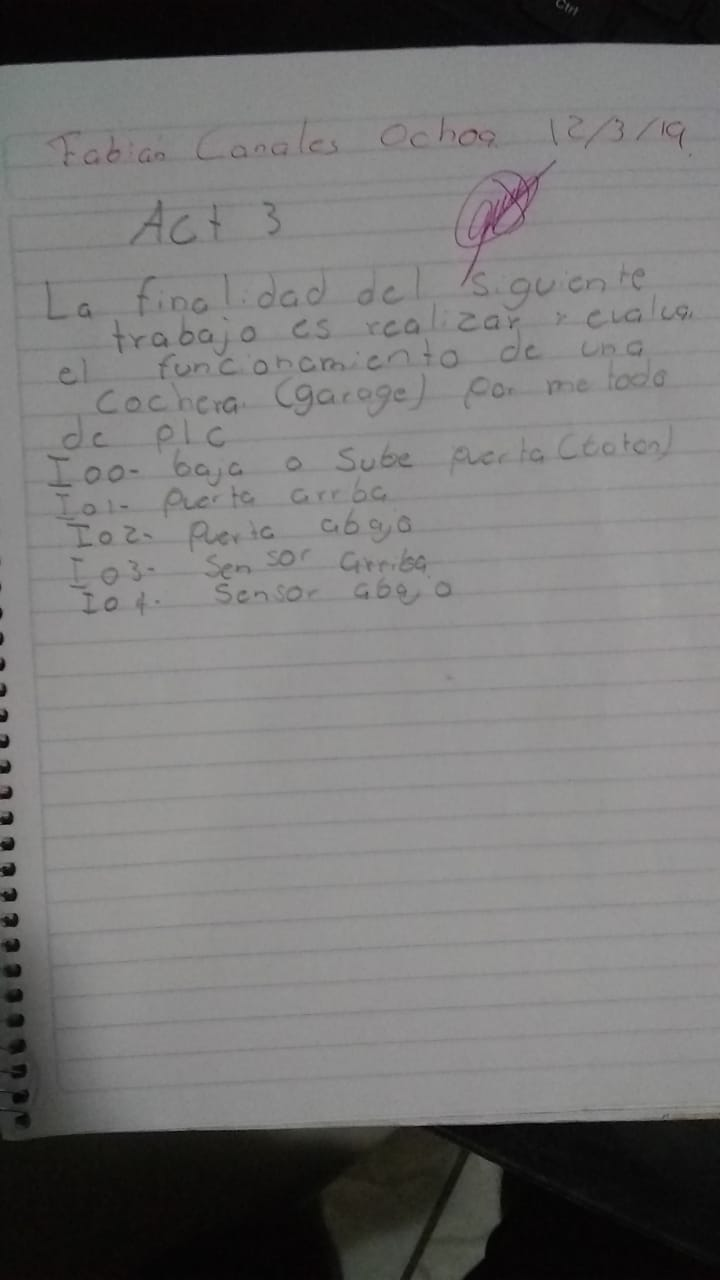 Ctrl
Fabian Canales Ochoa 12/3/19
Act 3
La finalidad del siguiente
trabajo es realizar y evalua
el funcionamiento de una
cochera (garage) por metodo
de plc
I00- baja o sube puerta (boton)
I01- puerta arrba
I02- puerta abajo
I03- sensor arriba
I04- sensor abajo